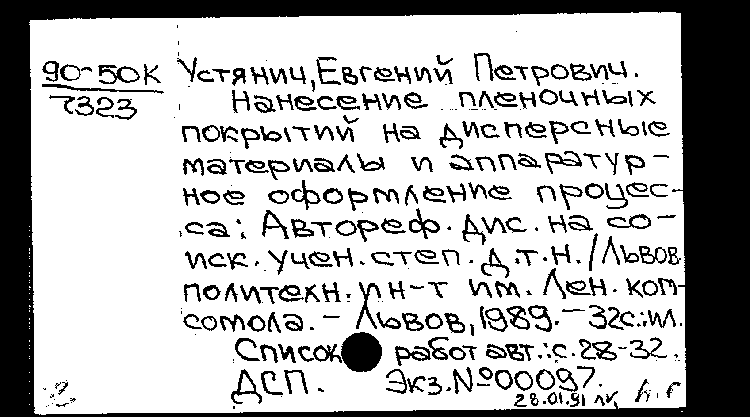 90-50К Устянич, Евгений Петрович.
7323 Нанесение пленочных
покрытий на дисперсные
материалы и аппаратур-
ное оформление процес-
са: Автореф. дис. на со-
иск. учен. степ. д.т.н. / Львов.
политехн. ин-т им. Лен. ком-
сомола. - Львов, 1989. - 32с.: ил.
Список работ авт.: с. 28-32.
ДСП. Экз. №00097.
28.01.91